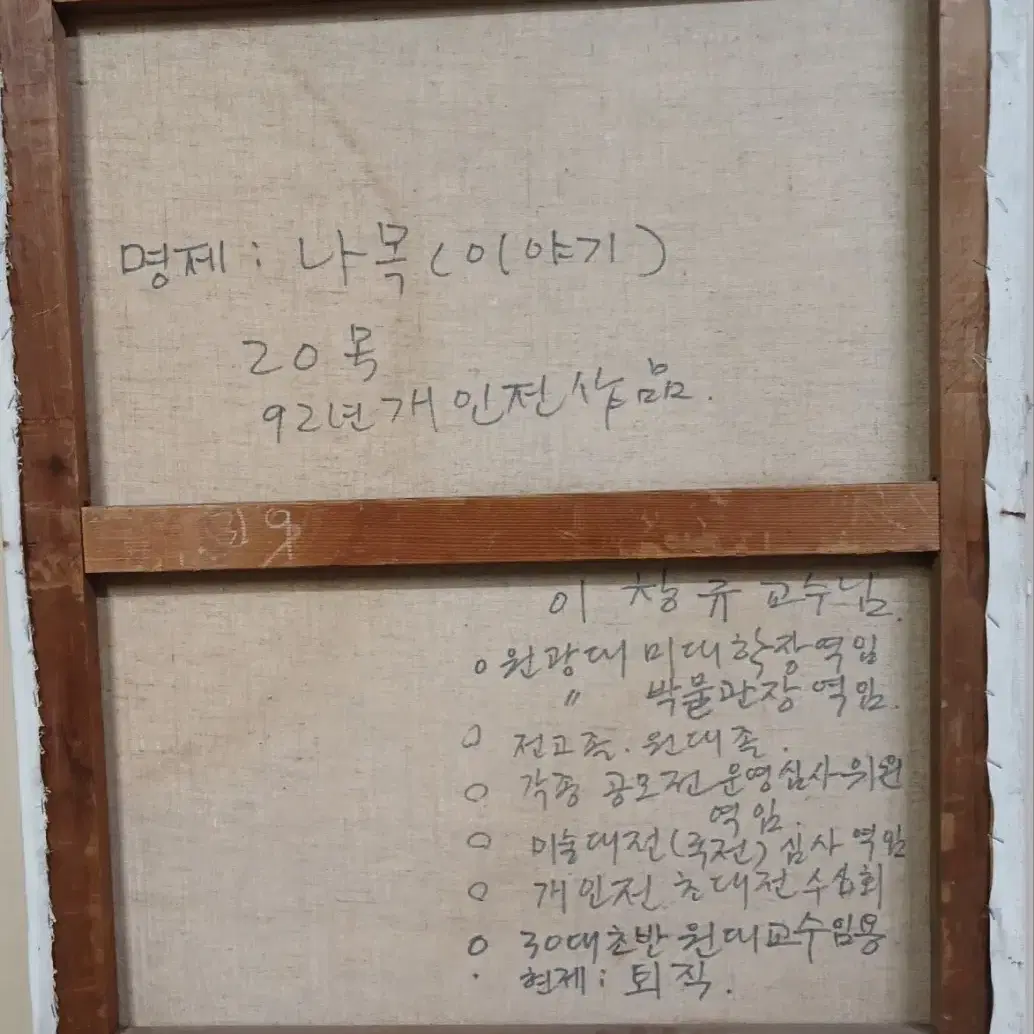 명제 : 나목 (이야기)
20호
92년 개인전 작품.
이 창 규 교수님.
o 원광대 미대학장역임
〃 박물관장 역임.
o 전고졸. 원대졸.
o 각종 공모전 운영심사위원
역임.
o 미술대전(국전) 심사 역임
o 개인전 초대전 수십회
o 30대초반 원대교수임용
· 현제 : 퇴직.